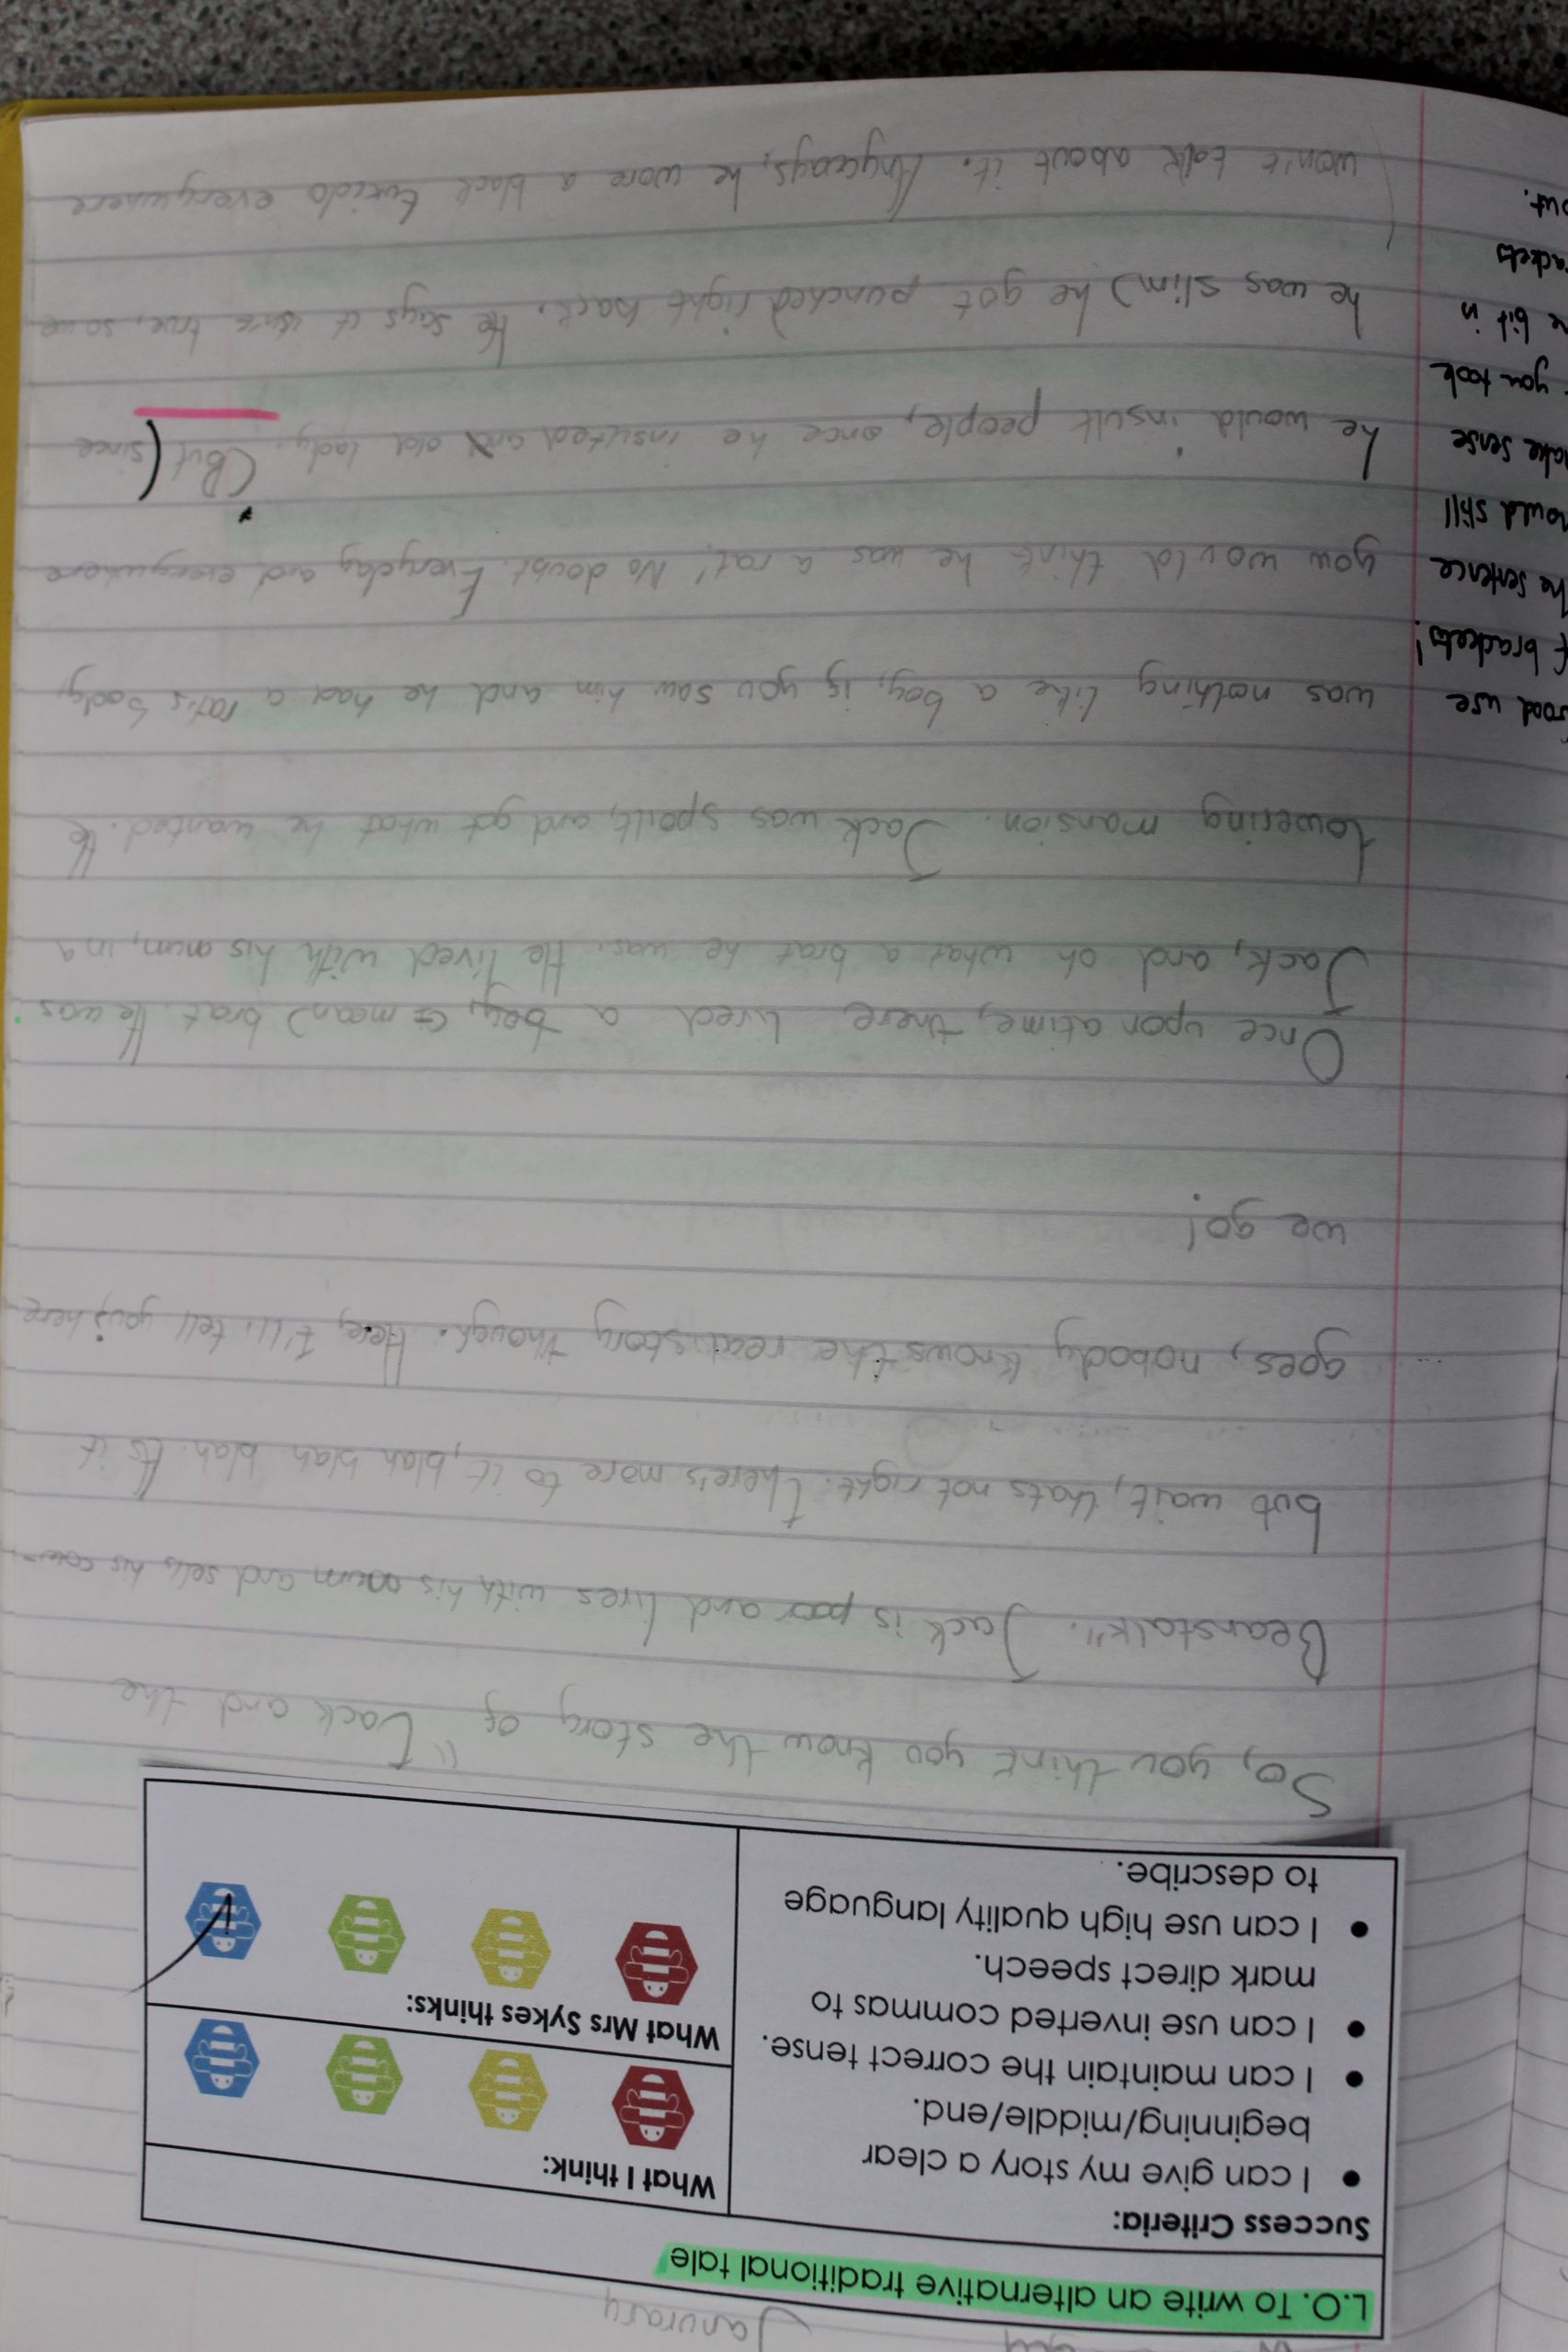 Janurary
L.O. To write an alternative traditional tale
Success Criteria:
• I can give my story a clear
beginning/middle/end.
• I can maintain the correct tense.
• I can use inverted commas to
mark direct speech.
• I can use high quality language
to describe.
What I think:
What Mrs Sykes thinks:
So, you think you know the story of "Jack and the
Beanstalk". Jack is poor and lives with his mum and sells his cow
but wait, thats not right. there's more to it, blah blah blah. As it
goes, nobody knows the real story though. Here, I'll tell you; here
we go!
Once upon a time, there lived a boy, (I mean) brat. He was
Jack, and oh what a brat he was. He lived with his mum, in a
towering mansion. Jack was spoilt, and got what he wanted. He
was nothing like a boy, if you saw him and he had a rat's body,
you would think he was a rat! No doubt. Everyday and everywhere
he would insult people, once he insulted an old lady. (But (since
he was slim) he got punched right back. He says it isn't true, so we
won't talk about it. Anyways, he wore a black tuxedo everywhere
ood use
f brackets!
he sentence
hould still
ake sense
you took
he bit in
ackets
out.